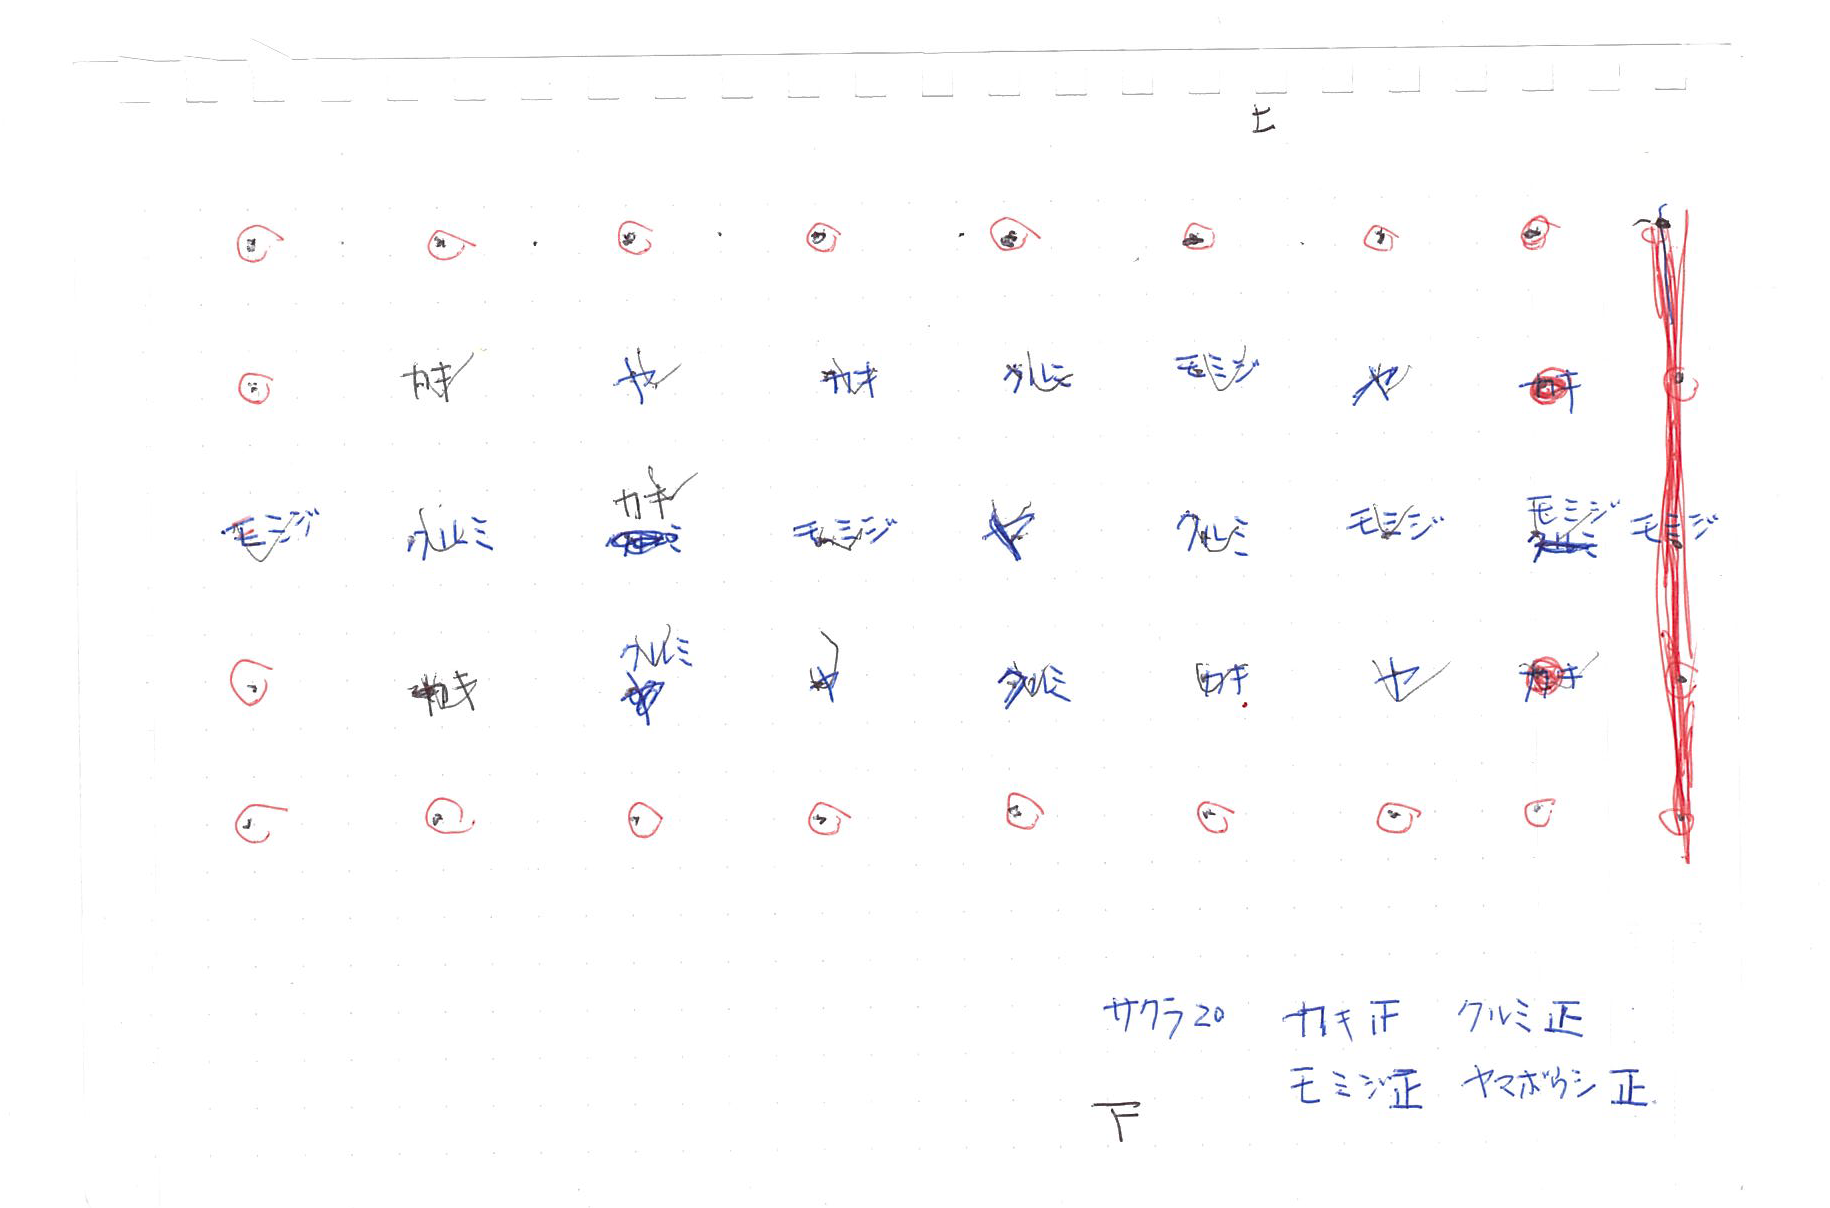 上
カキ ヤ カキ クルミ モミジ ヤ カキ
カキ
モミジ クルミ モミジ ヤ クルミ モミジ モミジ モミジ
クルミ
クルミ
カキ ヤ クルミ カキ ヤ カキ
サクラ20 カキ正 クルミ正
モミジ正 ヤマボウシ正
下